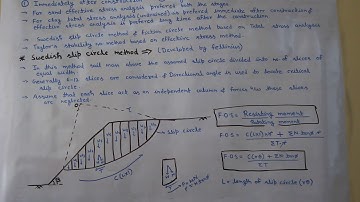 ① Immediately after construction
→ For sand effective stress analysis is preferred with the stages
→ For clay total stress analysis (undrained) is preferred immediately after construction &
effective stress analysis is preferred long time after the construction
→ Swedish slip circle method & friction circle method based on Total stress analysis
→ Taylor's stability no method based on effective stress method.
* Swedish slip circle method ⇒ (Developed by Fellinius)
→ In this method soil mass above the assumed slip circle divided into no of slices of
equal width.
→ Generally 6-12 slices are considered & Directional angle is used to locate critical
slip circle.
→ Assume that each slice act as an independent column & forces b/w these slices
are neglected
FOS = Resisting moment / moment
FOS = C(LX1)r + ΣN tanφ r / ΣT r
FOS = C(rθ) + ΣN tanφ / ΣT
L = length of slip circle (rθ)
slip circle
C(LX1)
r
β